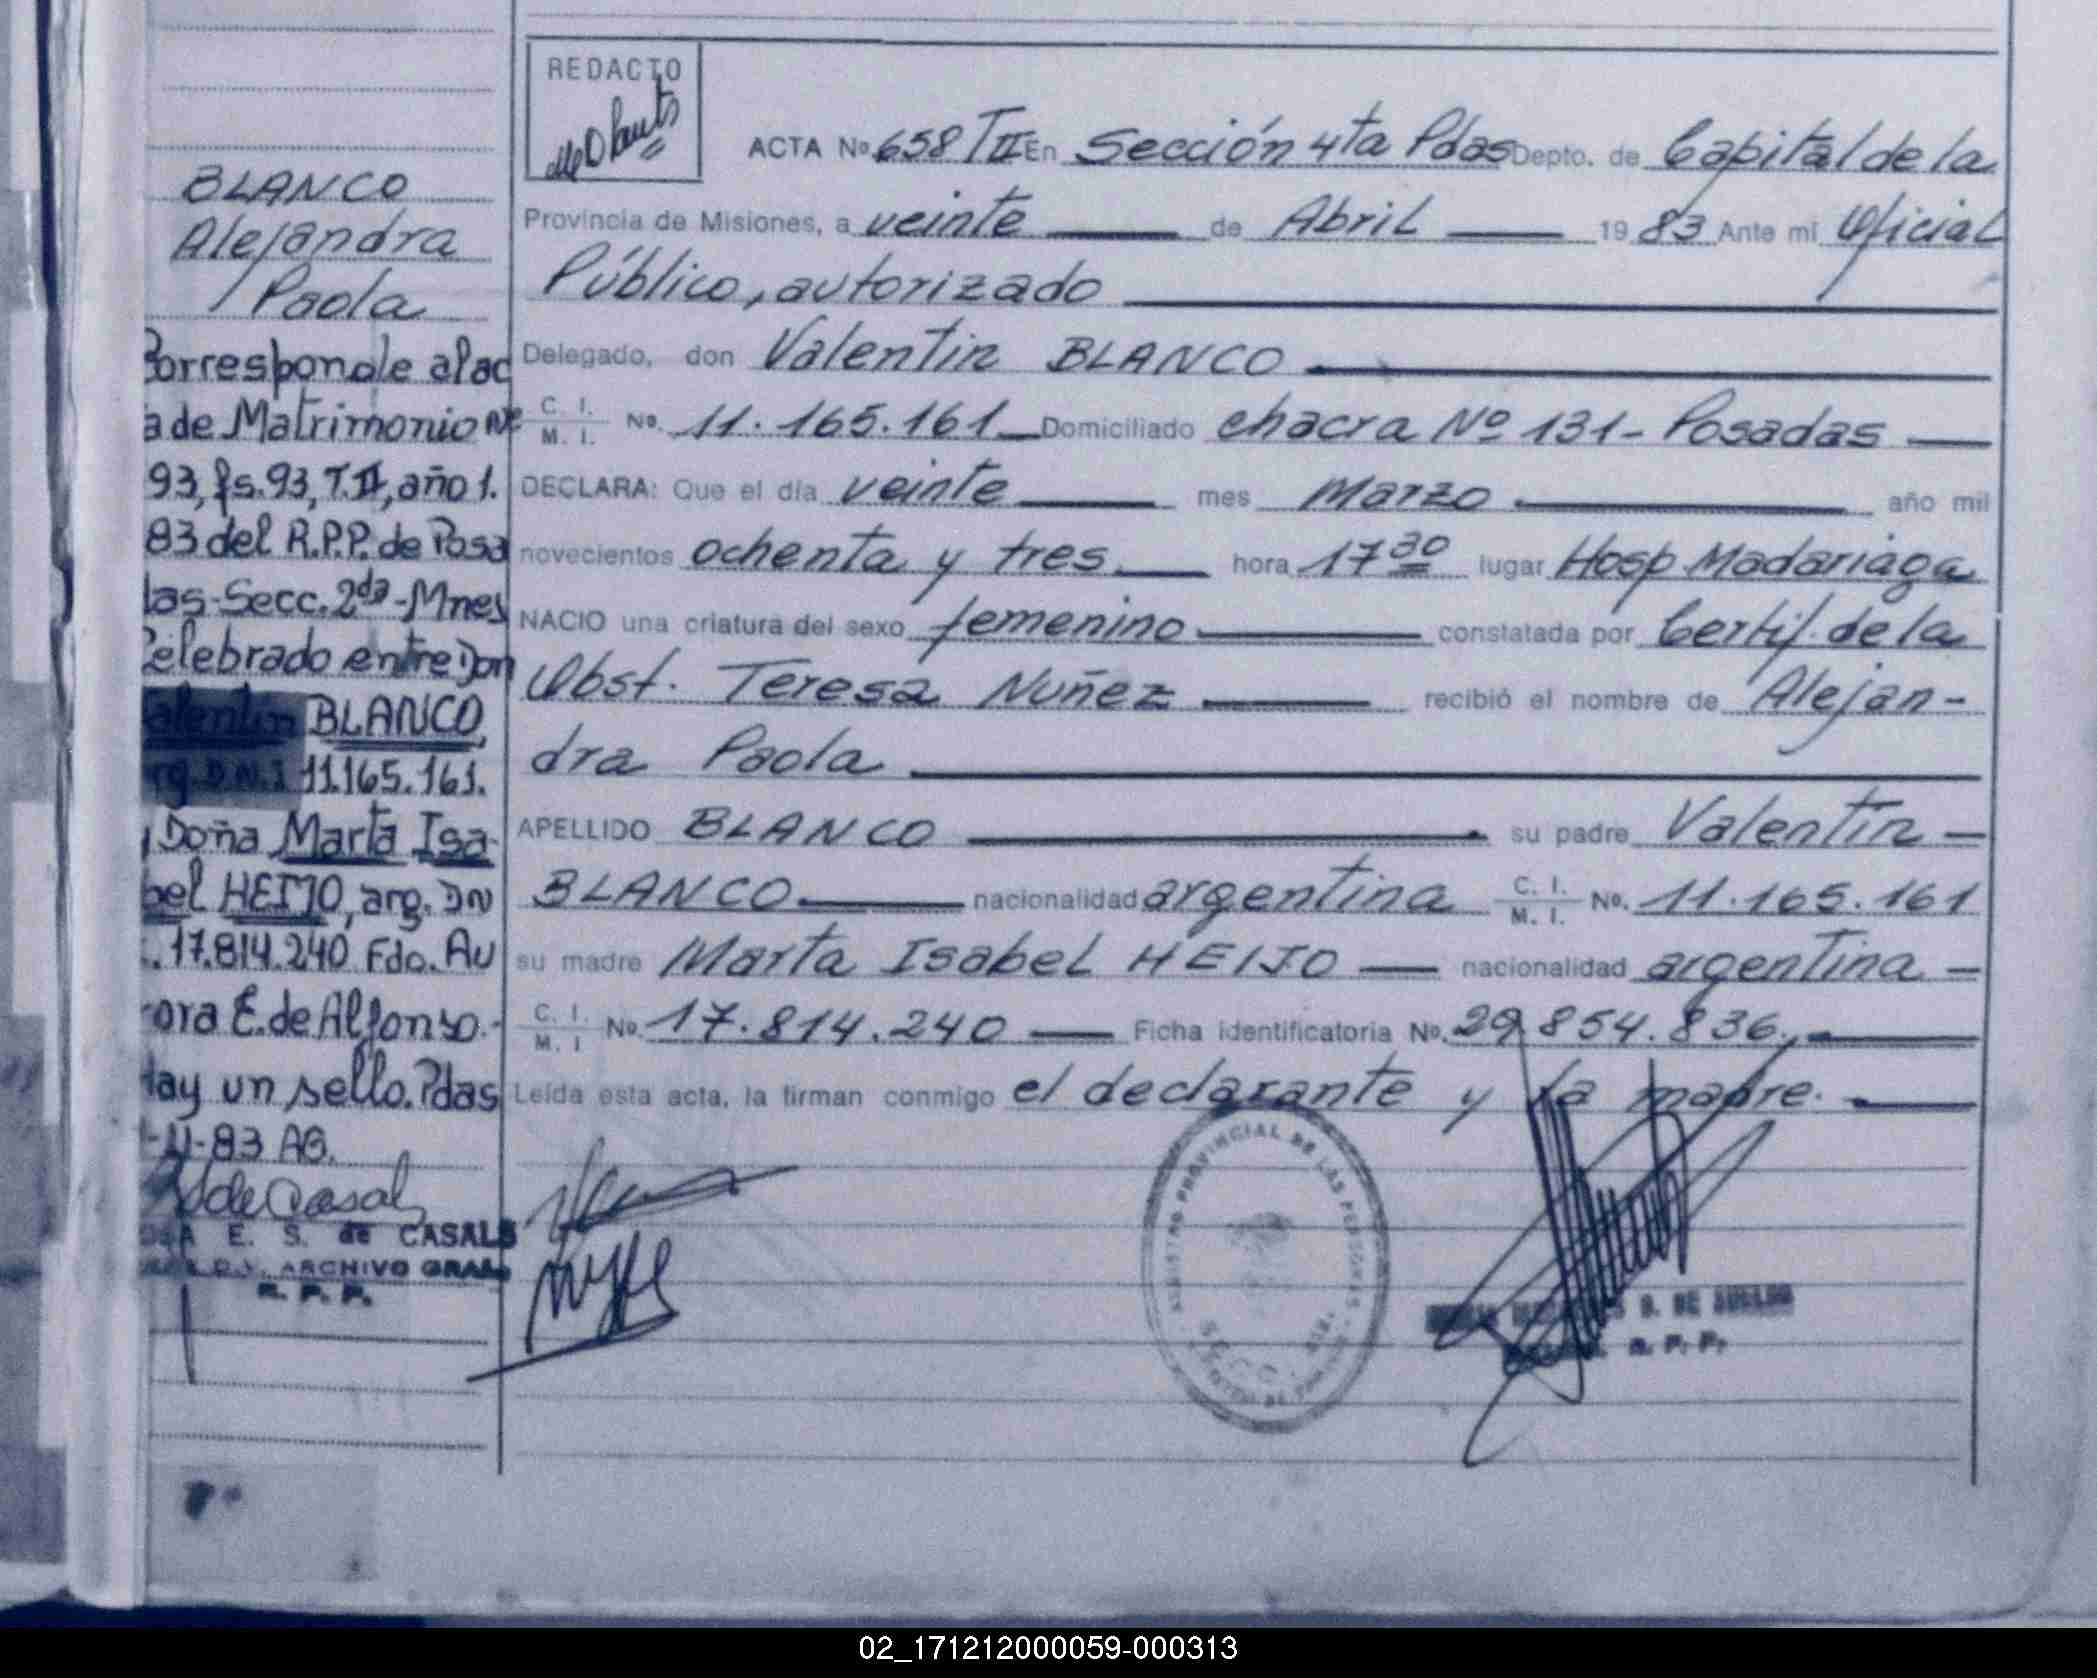 BLANCO
Alejandra
Paola
Corresponde al ac
a de Matrimonio Nº
93, fs. 93, T. II, año 1.
83 del R.P.P. de Posa
das-Secc. 2da-Mnes
Celebrado entre Don
Valentín BLANCO,
arg. D.N.I. 11.165.161.
y Doña Marta Isa-
bel HEIJO, arg. DN
I. 17.814.240 Fdo. Au
rora E. de Alfonso.-
Hay un sello. Pdas
-11-83 AG.
de Casals
E. S. de CASALS
ARCHIVO GRAL
R. P. P.
REDACTO
ACTA No. 658 T II En Sección 4ta Pdas Depto. de Capital de la
Provincia de Misiones, a veinte de Abril 1983 Ante mi Oficial
Público, autorizado
Delegado, don Valentin BLANCO
C. I. M. I. No. 11.165.161 Domiciliado chacra Nº 131- Posadas
DECLARA: Que el día veinte mes Marzo año mil
novecientos ochenta y tres hora 17 30 lugar Hosp. Madariaga
NACIO una criatura del sexo femenino constatada por Certif. de la
Obst. Teresa Nuñez recibió el nombre de Alejan-
dra Paola
APELLIDO BLANCO su padre Valentín
BLANCO nacionalidad argentina C. I. M. I. No. 11.165.161
su madre Marta Isabel HEIJO nacionalidad argentina
C. I. M. I No. 17.814.240 Ficha identificatoria No. 29.854.836.
Leída esta acta, la firman conmigo el declarante y la madre.
REGISTRO PROVINCIAL DE LAS PERSONAS
SECC. 4ta.
D. DE
R. P. P.
02_171212000059-000313